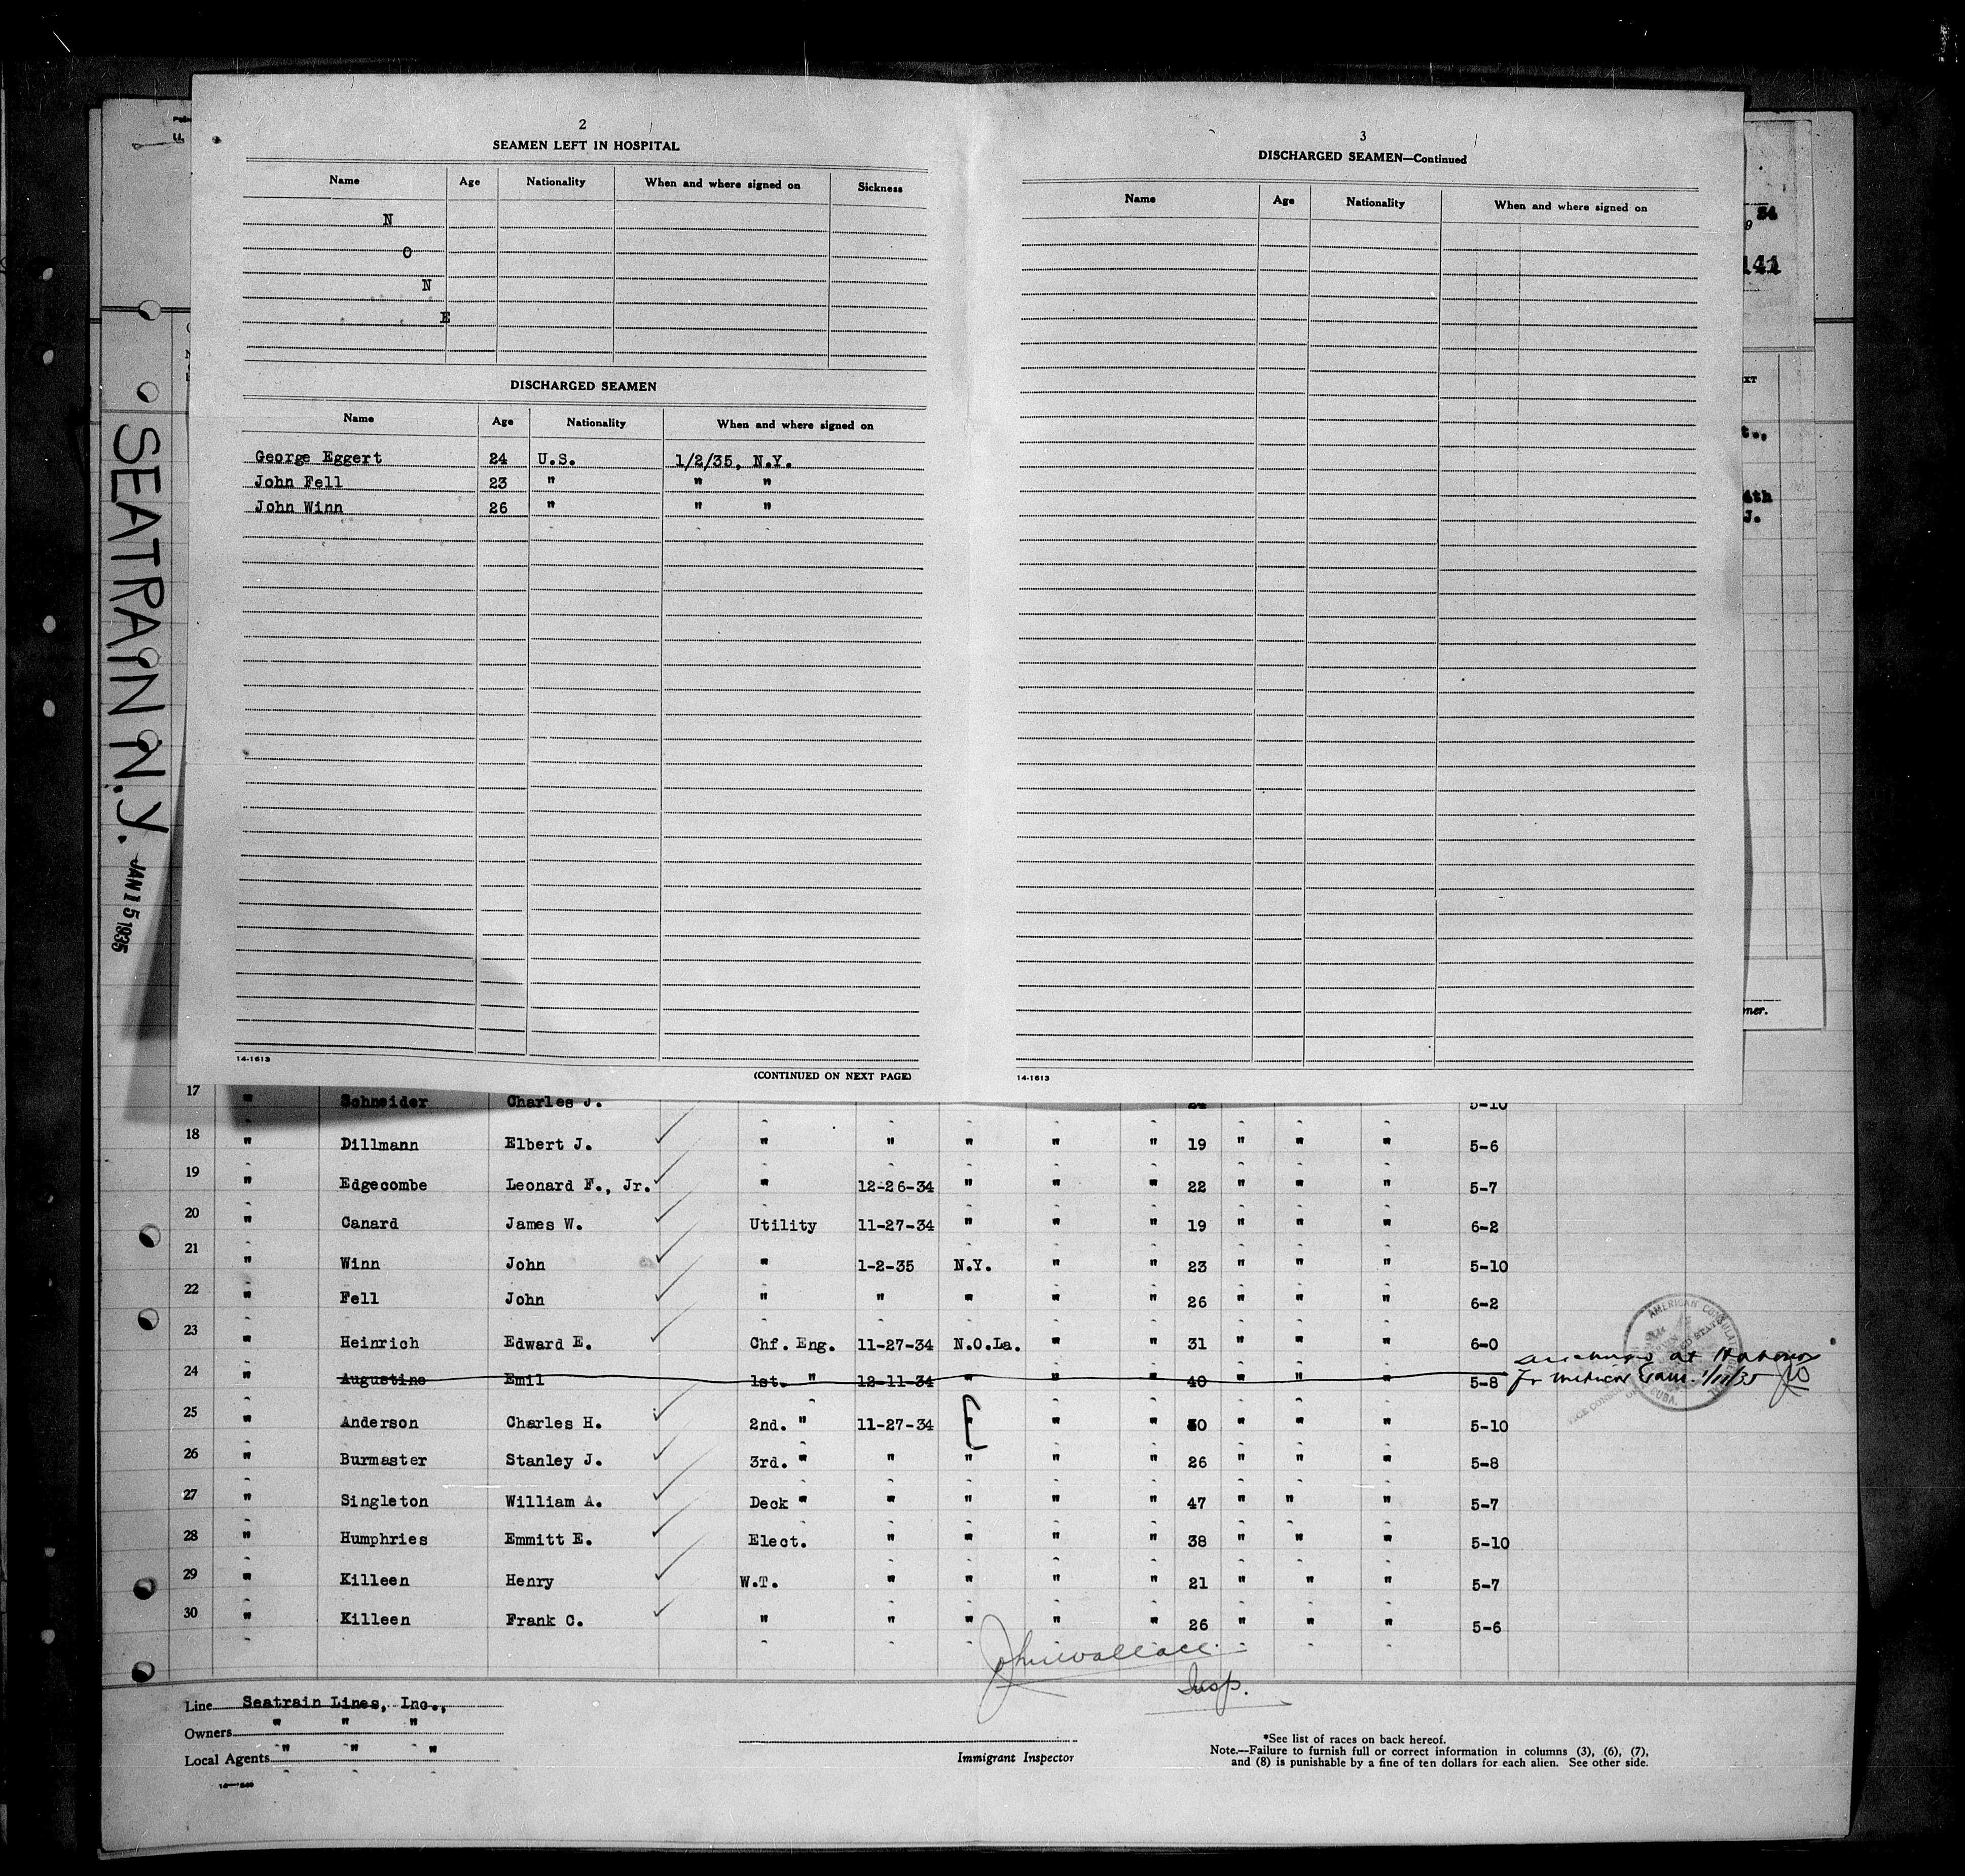 2
SEAMEN LEFT IN HOSPITAL
Name Age Nationality When and where signed on Sickness
N
O
N
E
DISCHARGED SEAMEN
Name Age Nationality When and where signed on
George Eggert 24 U.S. 1/2/35, N.Y.
John Fell 23 " " "
John Winn 26 " " "
14-1613
(CONTINUED ON NEXT PAGE)
3
DISCHARGED SEAMEN—Continued
Name Age Nationality When and where signed on
14-1613
34
9
141
t.,
4th
J.
SEATRAIN N.Y.
JAN 15 1935
17 " Schneider Charles J. 24 5-10
18 " Dillmann Elbert J. " " " " " 19 " " " 5-6
19 " Edgecombe Leonard F., Jr. " 12-26-34 " " " 22 " " " 5-7
20 " Canard James W. Utility 11-27-34 " " " 19 " " " 6-2
21 " Winn John " 1-2-35 N.Y. " " 23 " " " 5-10
22 " Fell John " " " " " 26 " " " 6-2
23 " Heinrich Edward E. Chf. Eng. 11-27-34 N.O.La. " " 31 " " " 6-0
24 " Augustine Emil 1st. " 12-11-34 " " " 40 " " " 5-8
at Havana
for medical Exam. 1/11/35
AMERICAN CONSULATE
CUBA.
25 " Anderson Charles H. 2nd. " 11-27-34 " " " 30 " " " 5-10
26 " Burmaster Stanley J. 3rd. " " " " " 26 " " " 5-8
27 " Singleton William A. Deck " " " " " 47 " " " 5-7
28 " Humphries Emmitt E. Elect. " " " " 38 " " " 5-10
29 " Killeen Henry W.T. " " " " 21 " " " 5-7
30 " Killeen Frank C. " " " " " 26 " " " 5-6
John Wallace
Insp.
Line Seatrain Lines, Inc.,
Owners " " "
Local Agents " " "
Immigrant Inspector
*See list of races on back hereof.
Note.—Failure to furnish full or correct information in columns (3), (6), (7),
and (8) is punishable by a fine of ten dollars for each alien. See other side.